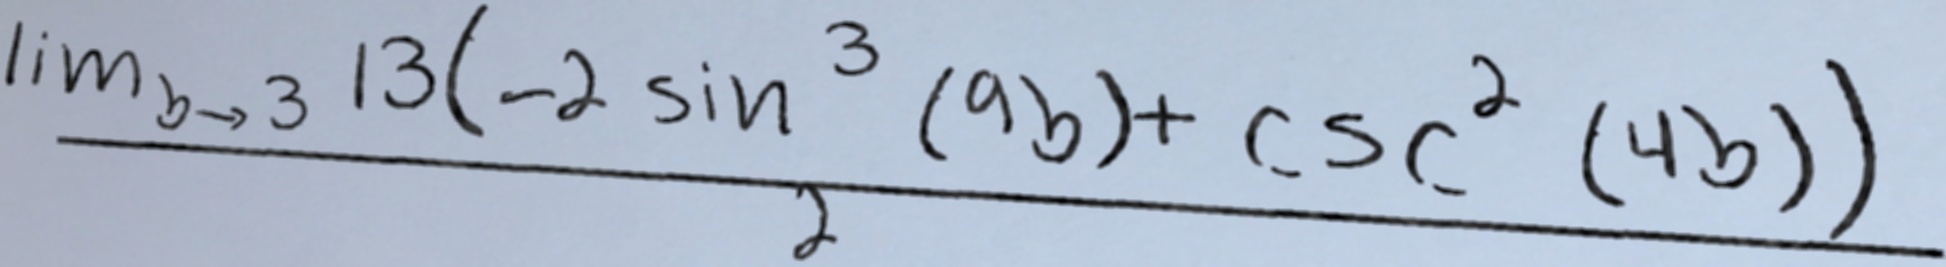 lim b→3 13(-2 sin^3 (9b)+ csc^2 (4b))
2